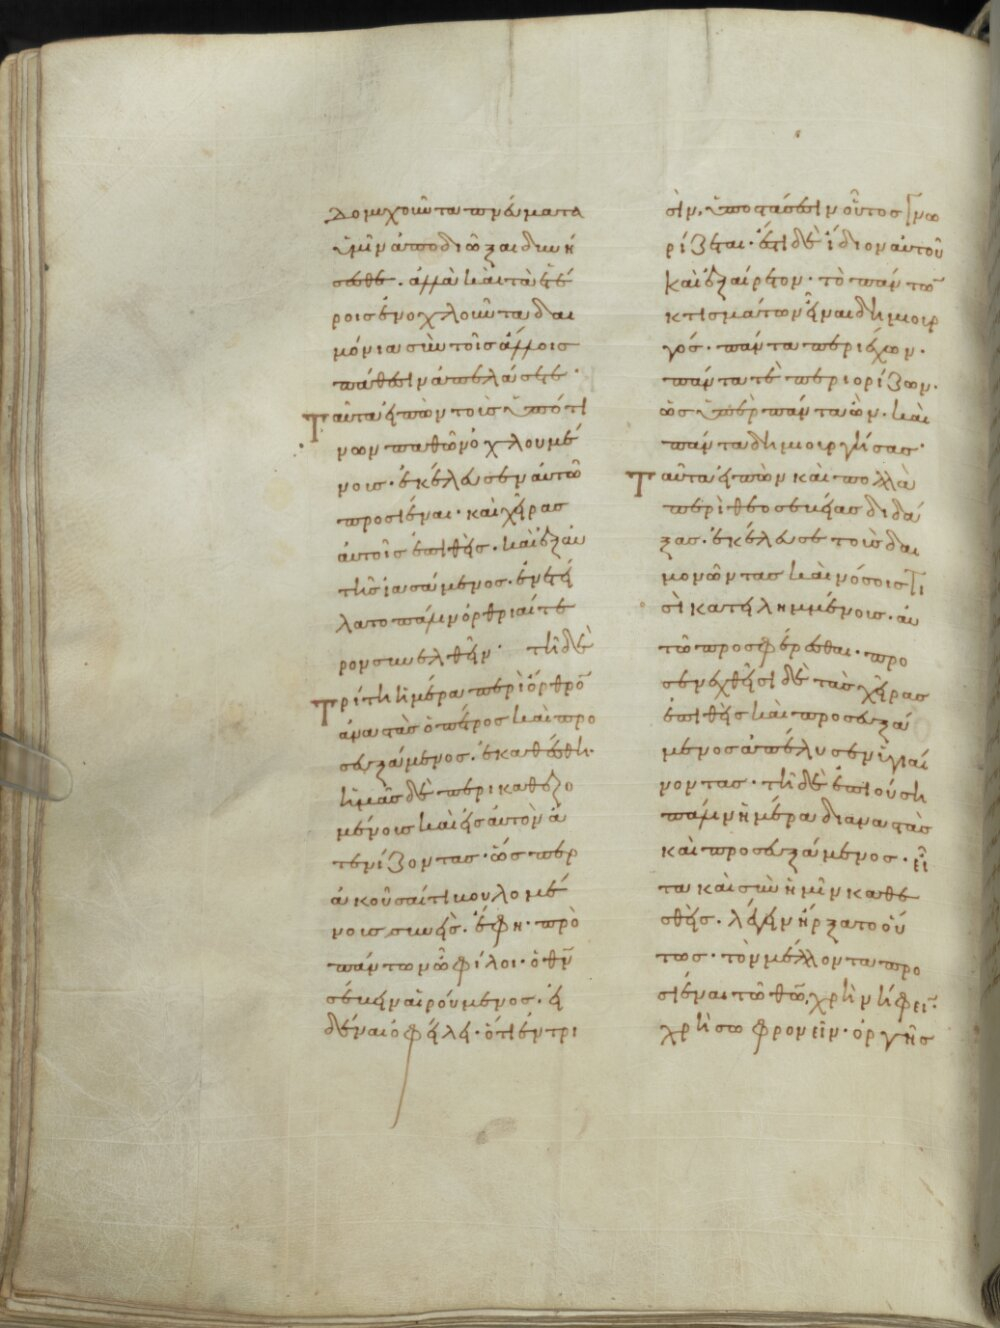 δομυχοῦντα πνεύματα
ὑμῖν ἀποδιῶξαι δυνή
σεσθε. ἀλλὰ καὶ τὰ ἑτέ
ροις ἐνοχλοῦντα δαι
μόνια σὺν τοῖς ἄλλοις
πάθεσιν ἀπελάσετε.
Ταῦτα εἰπὼν τοῖς ὑπό τι
νων παθῶν ὀχλουμέ
νοις. ἐκέλευσεν αὐτῶ
προσιέναι. καὶ χεῖρας
αὐτοῖς ἐπιθείς. καὶ εὐξάμενος
ἰασάμενος. ἐνετεί
λατο πάλιν ὀρθριαίτε
ρον συνελθεῖν. τῆ δὲ
Τρίτη ἡμέρα περὶ ὄρθρον
ἀναστὰς ὁ πέτρος καὶ προ
σευξάμενος. ἐκαθέσθη.
ἡμᾶς δὲ περικαθεζο
μένοις καὶ εἰς αὐτὸν ἀ
τενίζοντας. ὥσπερ
ἀκοῦσαί τι βουλομέ
νοις συνεὶς. ἔφη. πρὸ
πάντων ὦ φίλοι. ὁ θν
σέβειν αἱρούμενος. εἰ
δέναι ὀφείλει. ὅτι ἐν τρι
σὶν ὑποστάσεσιν οὗτος γνω
ρίζεται. ἔτι δὲ ἴδιον αὐτοῦ
καὶ ἐξαίρετον. τὸ πάντων
κτισμάτων εἶναι δημιουρ
γός. πάντα περιέχων.
πάντα τὲ περιορίζων.
ὡς ὑπὲρ πάντα ὤν. καὶ
πάντα δημιουργήσας.
Ταῦτα εἰπὼν καὶ πολλὰ
περὶ θεοσεβείας διδά
ξας. ἐκέλευσε τοὺς δαι
μονῶντας καὶ νόσοις τι
σὶ κατειλημμένοις. αὐ
τῶ προσφέρεσθαι. προ
σενεχθεῖσι δὲ τὰς χεῖρας
ἐπιθεὶς καὶ προσευξά
μενος ἀπέλυσεν ὑγιαί
νοντας. τῆ δὲ ἐπιούση
πάλιν ἡμέρα διαναστὰς
καὶ προσευξάμενος. εἶ
τα καὶ σὺν ἡμῖν καθε
σθεὶς. λέγειν ἤρξατο οὕ
τως. τὸν μέλλοντα προ
σιέναι τῶ θῶ, χρὴ νήφειν.
χρὴ σωφρονεῖν. ὀργῆς